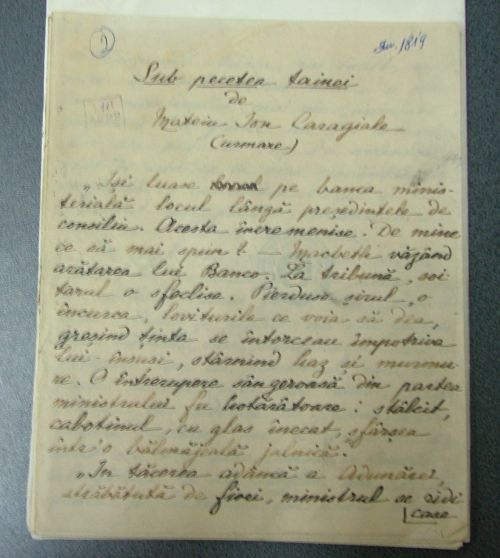 2
Inv. 1819
Sub pecetea tainei
de
Mateiu Ion Caragiale
(urmare)
„Iși luase pe banca minis-
terială locul lângă președintele de
consiliu. Acesta încremenise. De mine
ce să mai spun? — Macbeth văzând
arătarea lui Banco. La tribună, soi
tarul o sfeclise. Pierduse șirul, o
încurca, loviturile ce voia să dea,
greșind ținta se întorceau împotriva
lui-însuși, stârnind haz și murmu
re. O întrerupere sângeroasă din partea
ministrului fu hotărâtoare: stâlcit,
cabotinul, cu glas înecat, sfârșea
într'o bălmăjeală jalnică.
„In tăcerea adâncă a Adunărei,
străbătută de fiori, ministrul se ridi
case